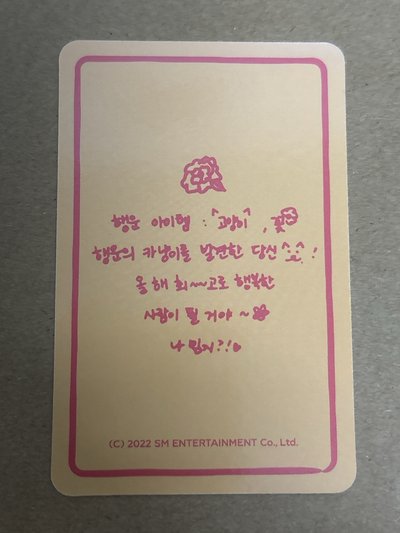 행운 아이템 : "고양이", 꽃
행운의 카냥이를 발견한 당신^_^!
올해 최~~고로 행복한
사람이 될 거야 ~
나 믿지?!♡
(C) 2022 SM ENTERTAINMENT Co., Ltd.